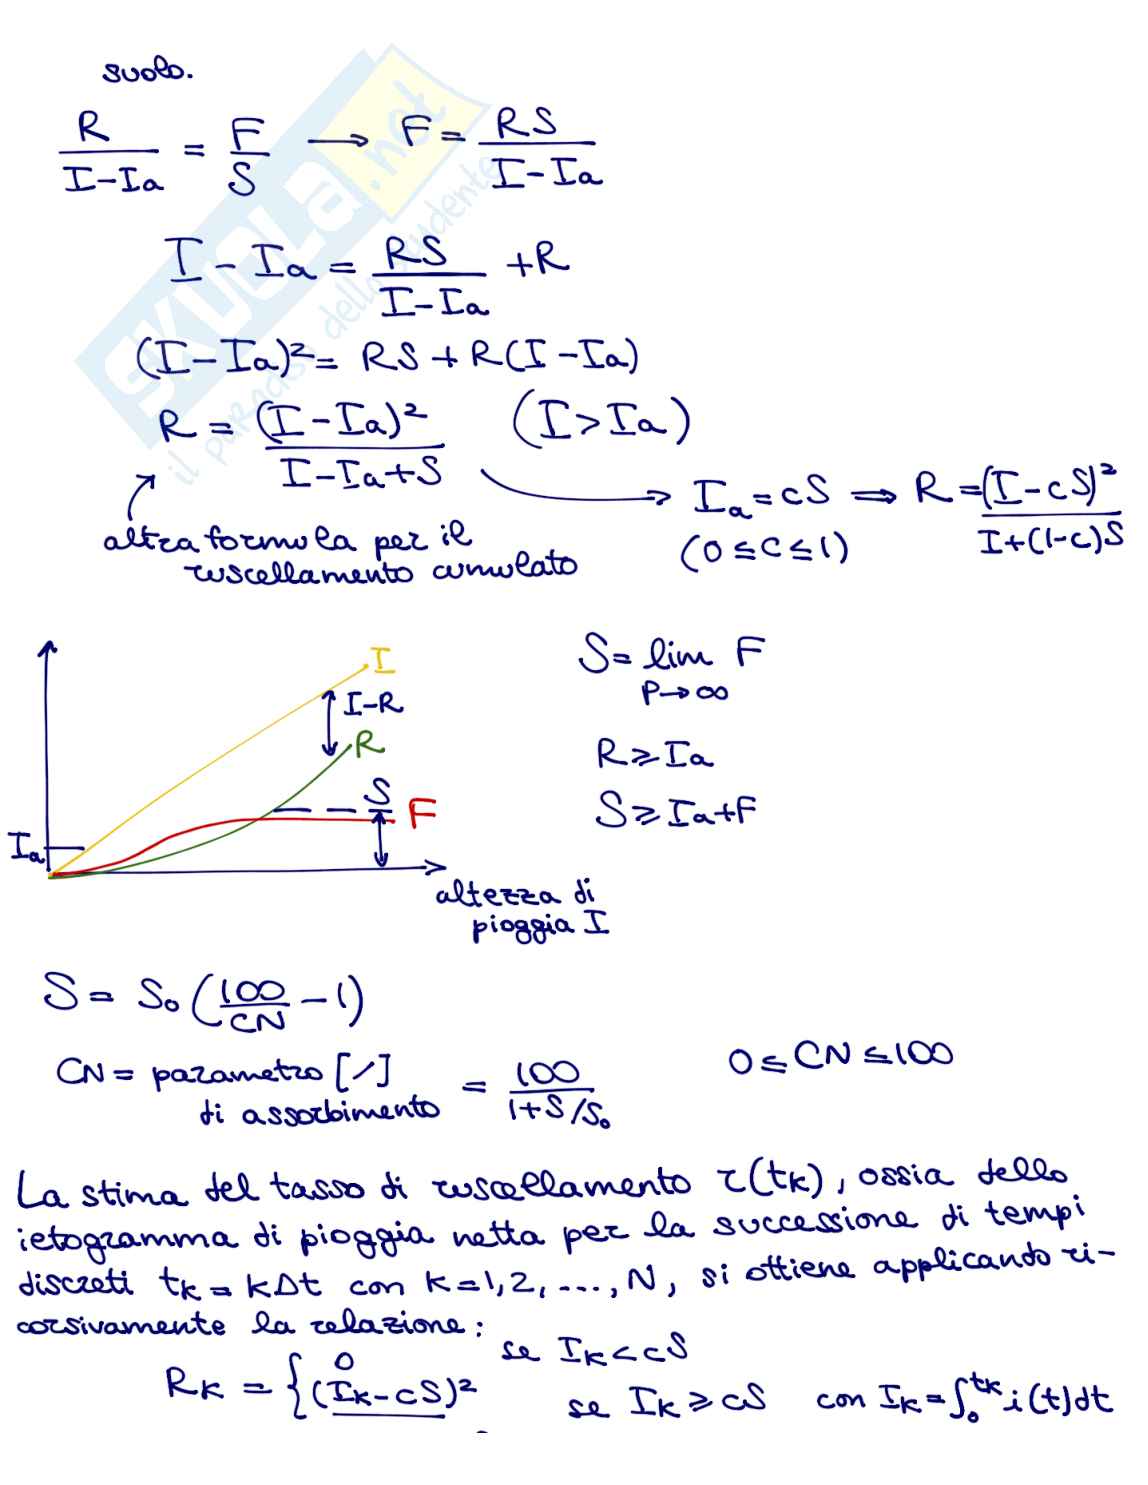 suolo.
R/(I-Ia) = F/S → F = RS/(I-Ia)
I - Ia = RS/(I-Ia) + R
(I-Ia)² = RS + R(I-Ia)
R = (I-Ia)²/(I-Ia+S) (I>Ia)
Ia = cS ⇒ R = (I-cS)²/(I+(1-c)S)
(0≤c≤1)
altra formula per il
ruscellamento cumulato
I
I-R
R
S
F
Ia
altezza di
pioggia I
S = lim F
P→∞
R ≥ Ia
S ≥ Ia+F
S = S₀(100/CN - 1)
CN = parametro [/]
di assorbimento
= 100/(1+S/S₀)
0 ≤ CN ≤ 100
La stima del tasso di ruscellamento r(tk), ossia dello
ietogramma di pioggia netta per la successione di tempi
discreti tk = kΔt con k=1,2,...,N, si ottiene applicando ri-
corsivamente la relazione:
Rk = { 0 se Ik < cS
(Ik-cS)² se Ik ≥ cS con Ik = ∫₀^tk i(t)dt
SKUOLA.net
il paradiso dello studente